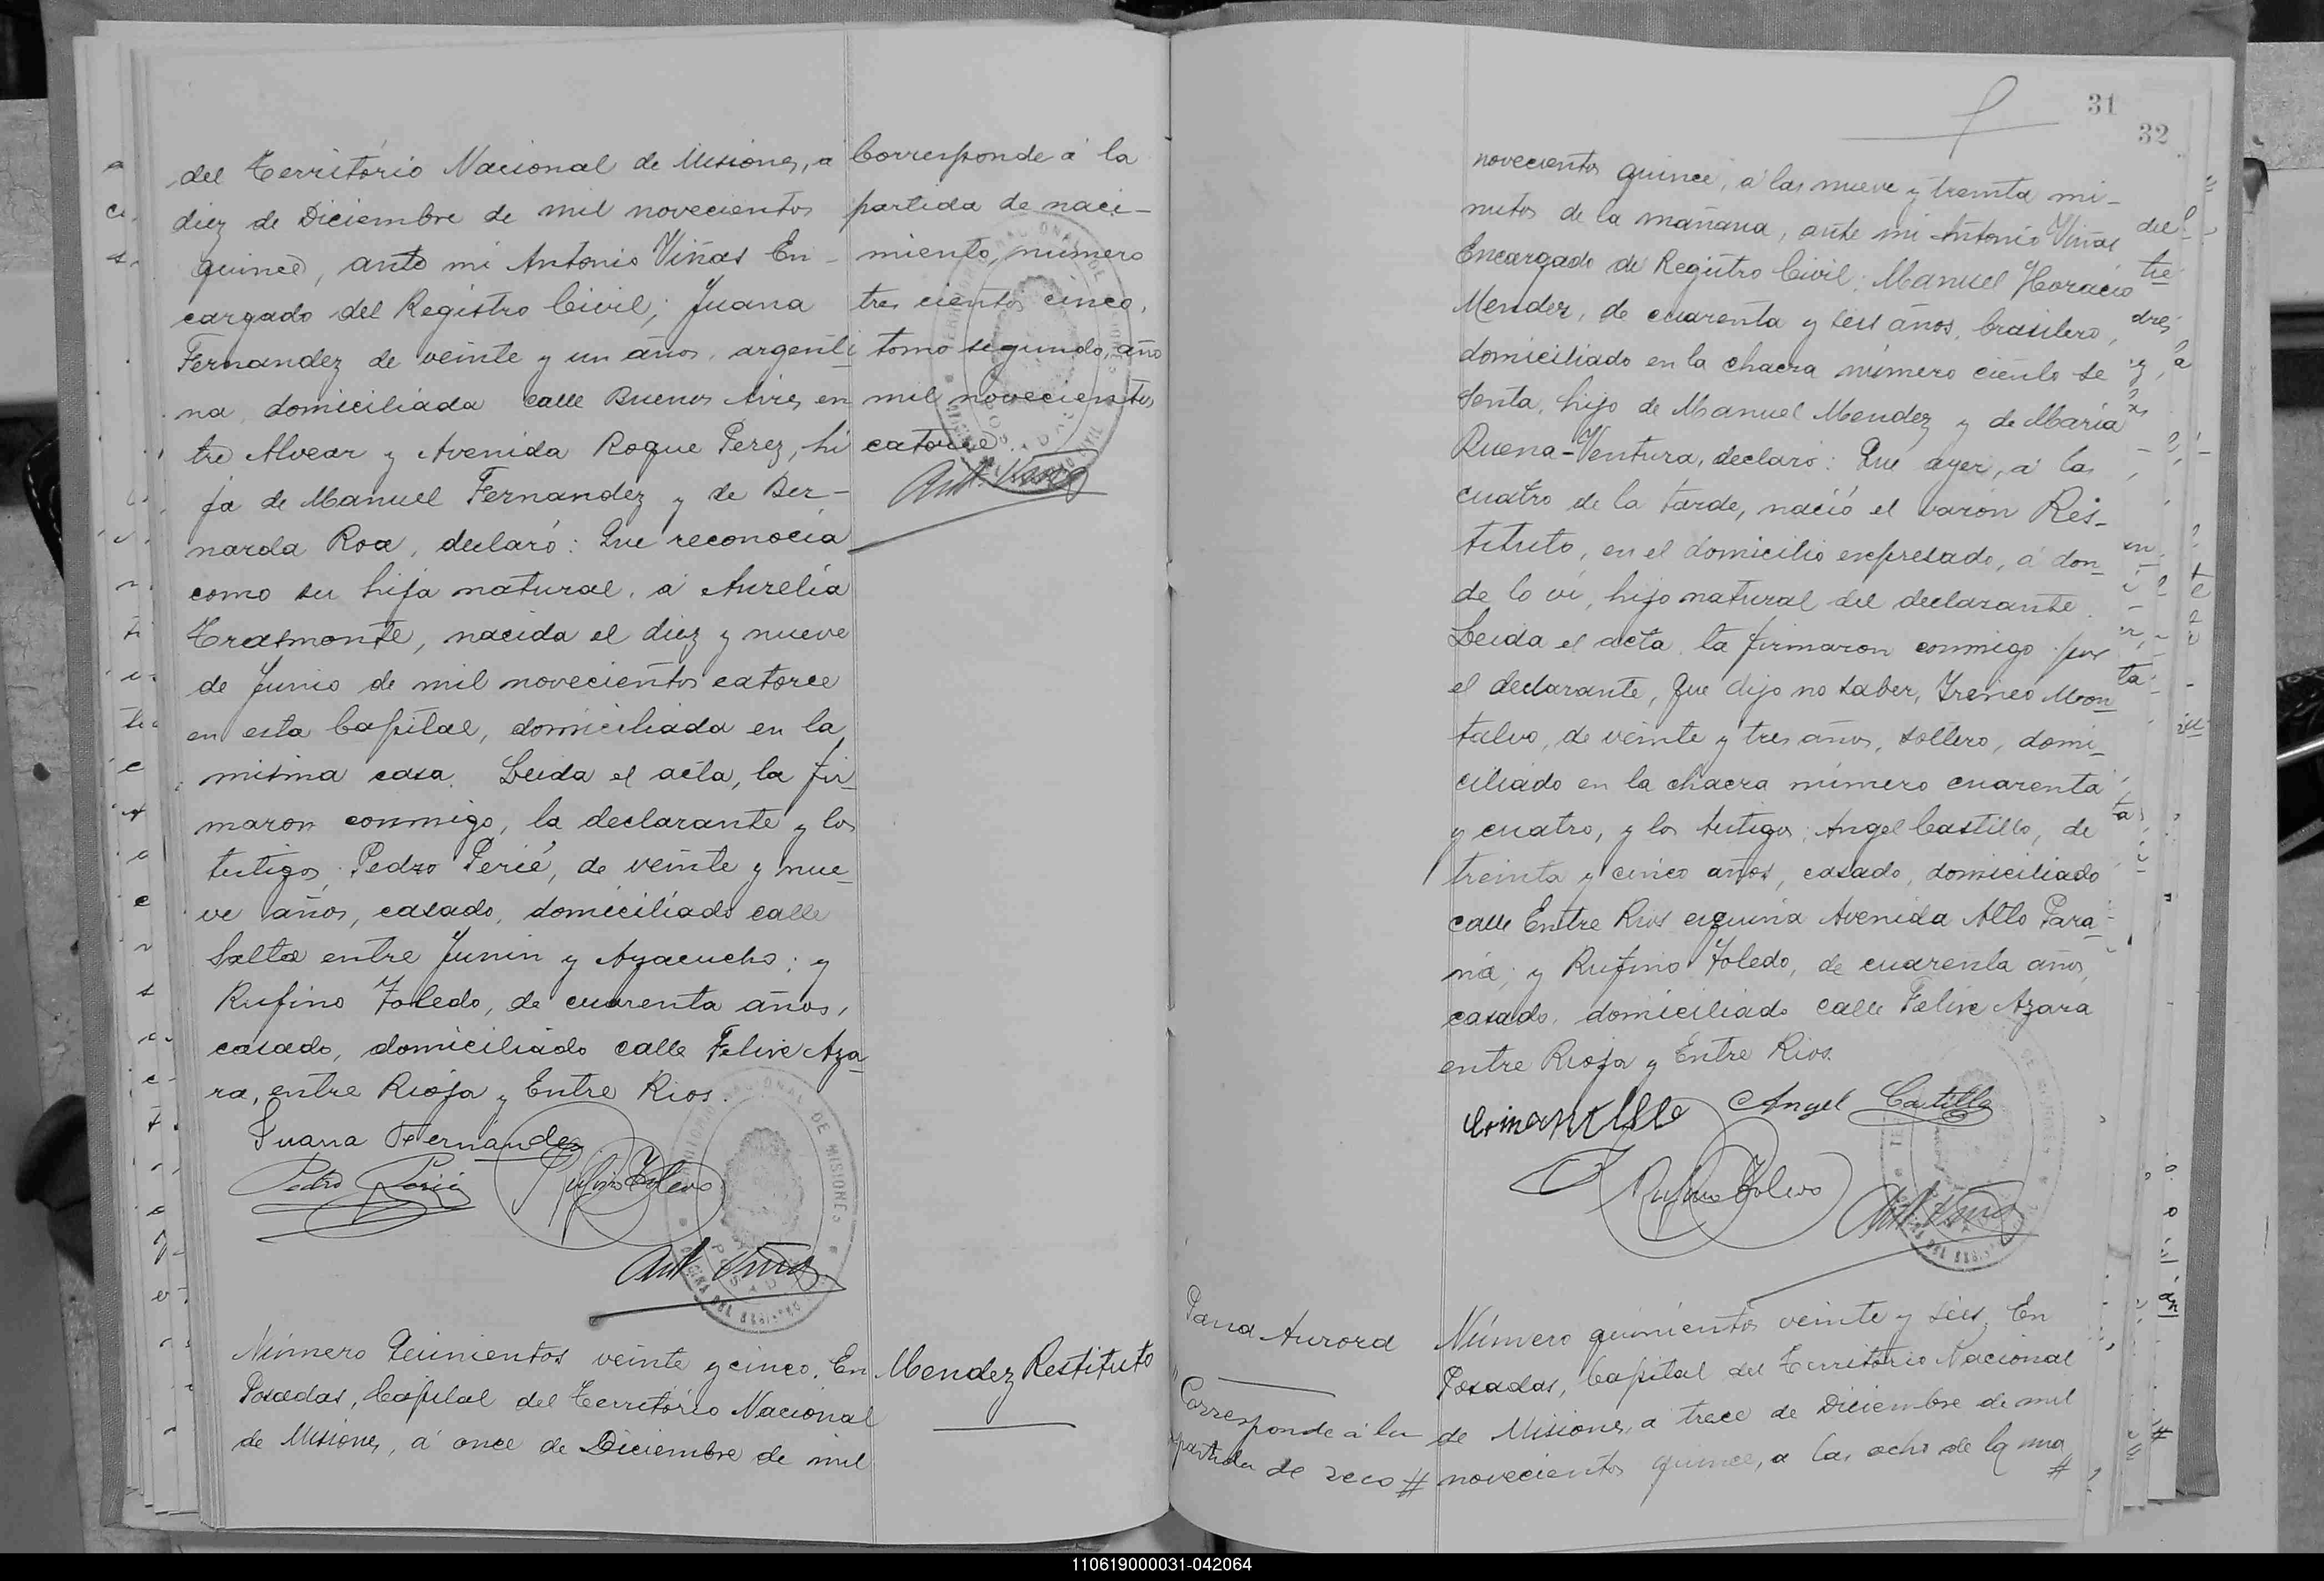 del Territorio Nacional de Misiones, a
diez de Diciembre de mil novecientos
quince, ante mi Antonio Viñas En-
cargado del Registro Civil; Juana
Fernandez de veinte y un años, argenti
na, domiciliada calle Buenos Aires en
tre Alvear y Avenida Roque Perez, hi
ja de Manuel Fernandez y de Ber-
narda Roa, declaró: Que reconocia
como su hija natural, a Aurelia
Trasmonte, nacida el diez y nueve
de Junio de mil novecientos catorce
en esta Capital, domiciliada en la
misma casa. Leida el acta, la fir-
maron conmigo, la declarante y los
testigos, Pedro Perié, de veinte y nue-
ve años, casado, domiciliado calle
Salta entre Junin y Ayacucho; y
Rufino Toledo, de cuarenta años,
casado, domiciliado calle Felix Aza-
ra, entre Rioja y Entre Rios.
Juana Fernandez
Pedro Perié Rufino Toledo
Ant. Viñas
Corresponde á la
partida de naci-
miento, numero
tres cientos cinco,
tomo segundo, año
mil novecientos
catorce.
Ant. Viñas
Número Quinientos veinte y cinco. En
Posadas, Capital del Territorio Nacional
de Misiones, á once de Diciembre de mil
Mendez Restituto
31
32
novecientos quince, a las nueve y treinta mi-
nutos de la mañana, ante mi Antonio Viñas
Encargado de Registro Civil; Manuel Horacio
Mendez, de cuarenta y seis años, brasilero,
domiciliado en la chacra número ciento se
senta, hijo de Manuel Mendez y de Maria
Buena-Ventura, declaró: Que ayer, a las
cuatro de la tarde, nació el varón Res-
tituto, en el domicilio expresado, a don-
de lo vi, hijo natural del declarante.
Leida el acta, la firmaron conmigo por
el declarante, que dijo no saber, Ireneo Mon-
talvo, de veinte y tres años, soltero, domi-
ciliado en la chacra número cuarenta
y cuatro, y los testigos, Angel Castillo, de
treinta y cinco años, casado, domiciliado
calle Entre Rios esquina Avenida Alto Para-
ná; y Rufino Toledo, de cuarenta años,
casado, domiciliado calle Felix Azara
entre Rioja y Entre Rios.
Angel Castillo
Rufino Toledo Ant. Viñas
Pana Aurora
Corresponde á la
partida de reco #
Número quinientos veinte y seis. En
Posadas, Capital del Territorio Nacional
de Misiones, a trece de Diciembre de mil
novecientos quince, a las ocho de la ma #
110619000031-042064